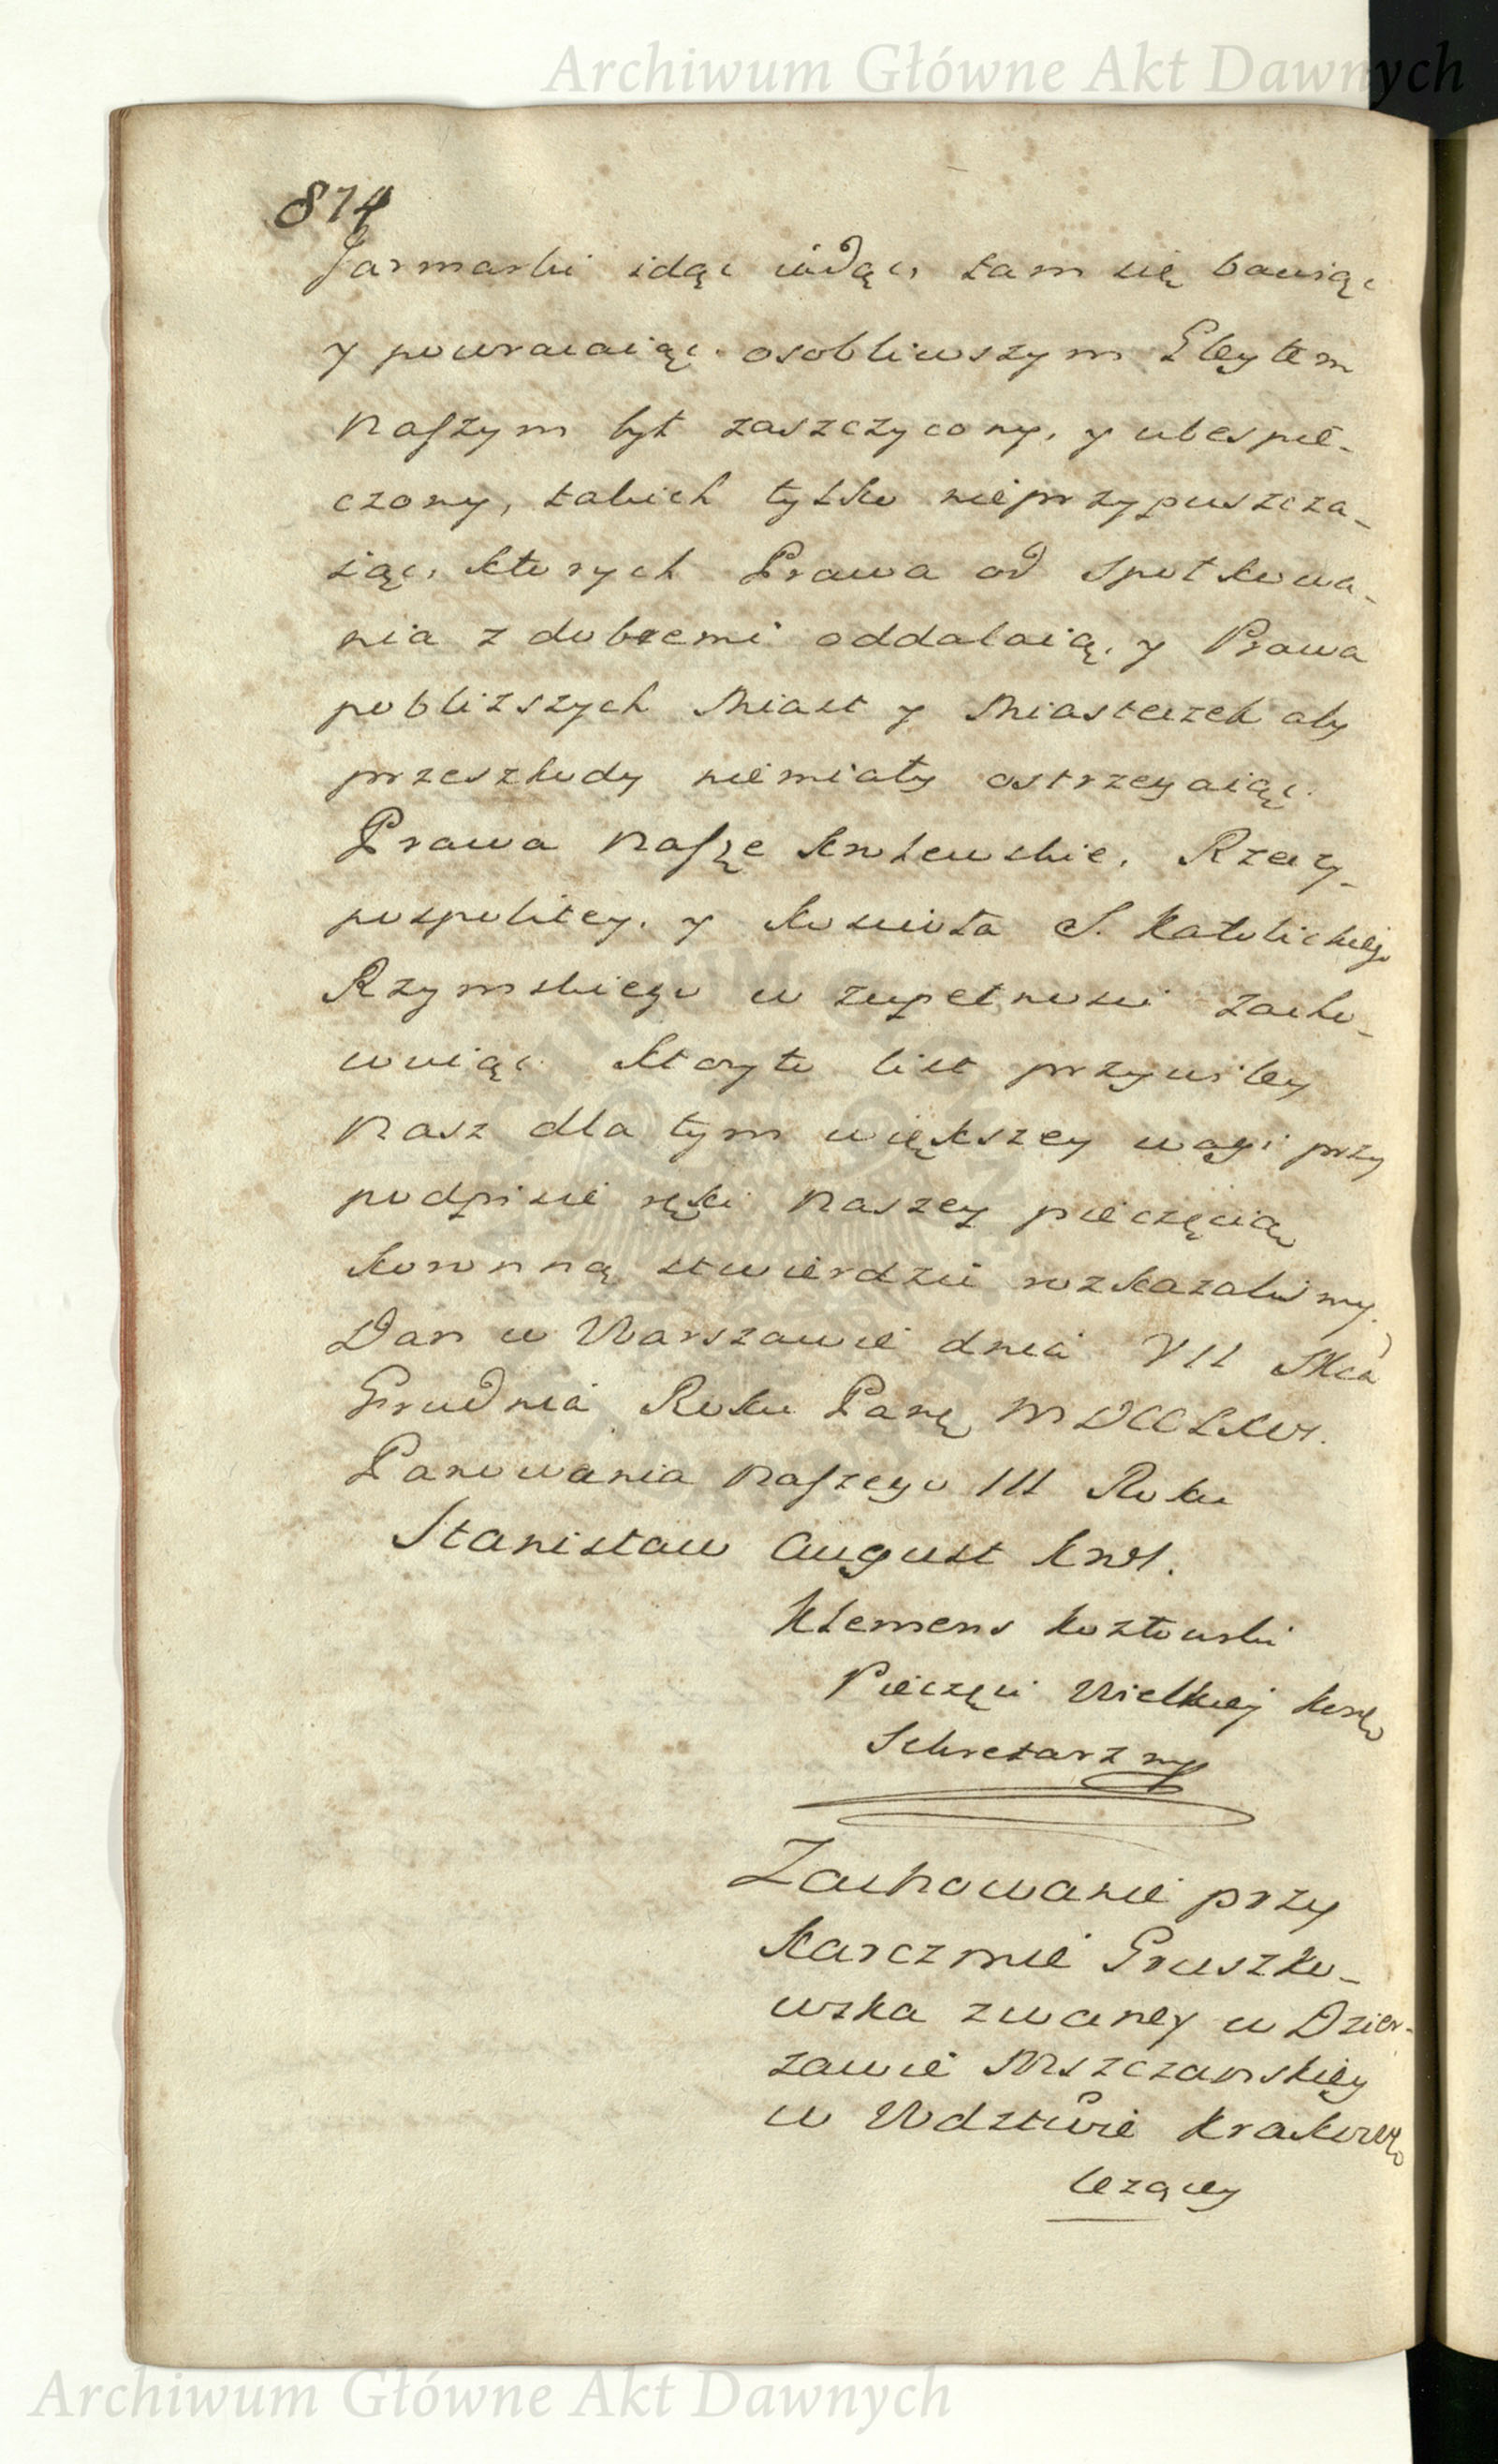 Archiwum Główne Akt Dawnych
874
Jarmarki idąc iadąc, tam się bawiąc
y powracaiąc osobliwszym Gleytem
naszym był zaszczycony, y ubespie-
czony, takich tylko nieprzypuszcza-
iąc, ktorych Prawa od społkowa-
nia z dobremi oddalaią, y Prawa
pobliższych Miast y Miasteczek aby
przeszkody niemiały ostrzegaiąc.
Prawa nasze Krolewskie, Rzeczy-
pospolitey, y Kościoła S. Katolickiego
Rzymskiego w zupełności zacho-
wuiąc. Ktory to list przywiley
nasz dla tym większey wagi przy
podpisie ręki naszey pieczęcią
koronną stwierdzić rozkazaliśmy.
Dan w Warszawie dnia VII Mca
Grudnia Roku Panę
Panowania naszego III Roku
Stanisław August Krol.
Klemens Kozłowski
Pieczęci Wielkiej
Sekretarz mp
Zachowanie przy
Karczmie Gruszko-
wska zwaney w Dzier-
zawie Mszczanskiey
w Wdztwie
lezącey
Archiwum Główne Akt Dawnych